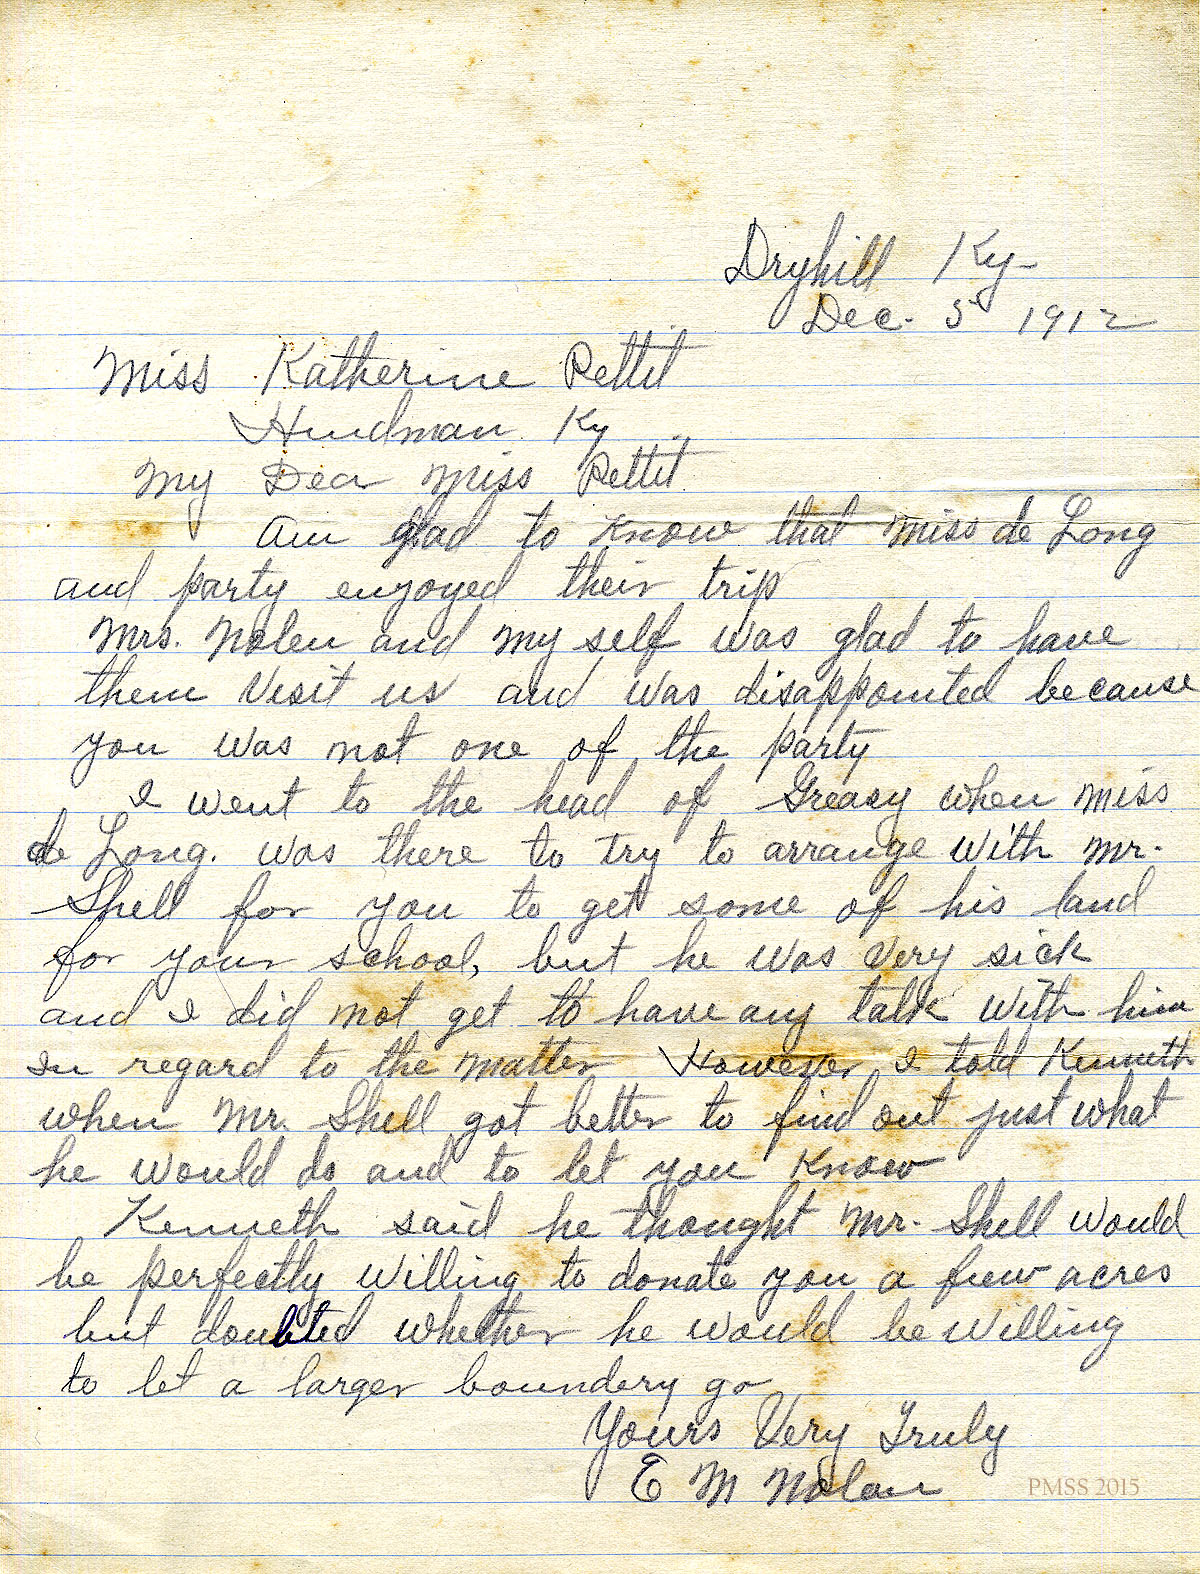 Dryhill Ky-
Dec. 5 1912
Miss Katherine Pettit
Hindman Ky
My Dear Miss Pettit
Am glad to know that Miss de Long
and party enjoyed their trip
Mrs. Nolen and my self was glad to have
them visit us and was disappointed because
you was not one of the party
I went to the head of Greasy when Miss
de Long. was there to try to arrange with Mr.
Shell for you to get some of his land
for your school, but he was very sick
and I did not get to have any talk with him
in regard to the matter However I told Kenneth
when Mr. Shell got better to find out just what
he would do and to let you know
Kenneth said he thought Mr. Shell would
be perfectly willing to donate you a few acres
but doubted whether he would be willing
to let a larger boundery go
Yours Very Truly
E M Nolan
PMSS 2015